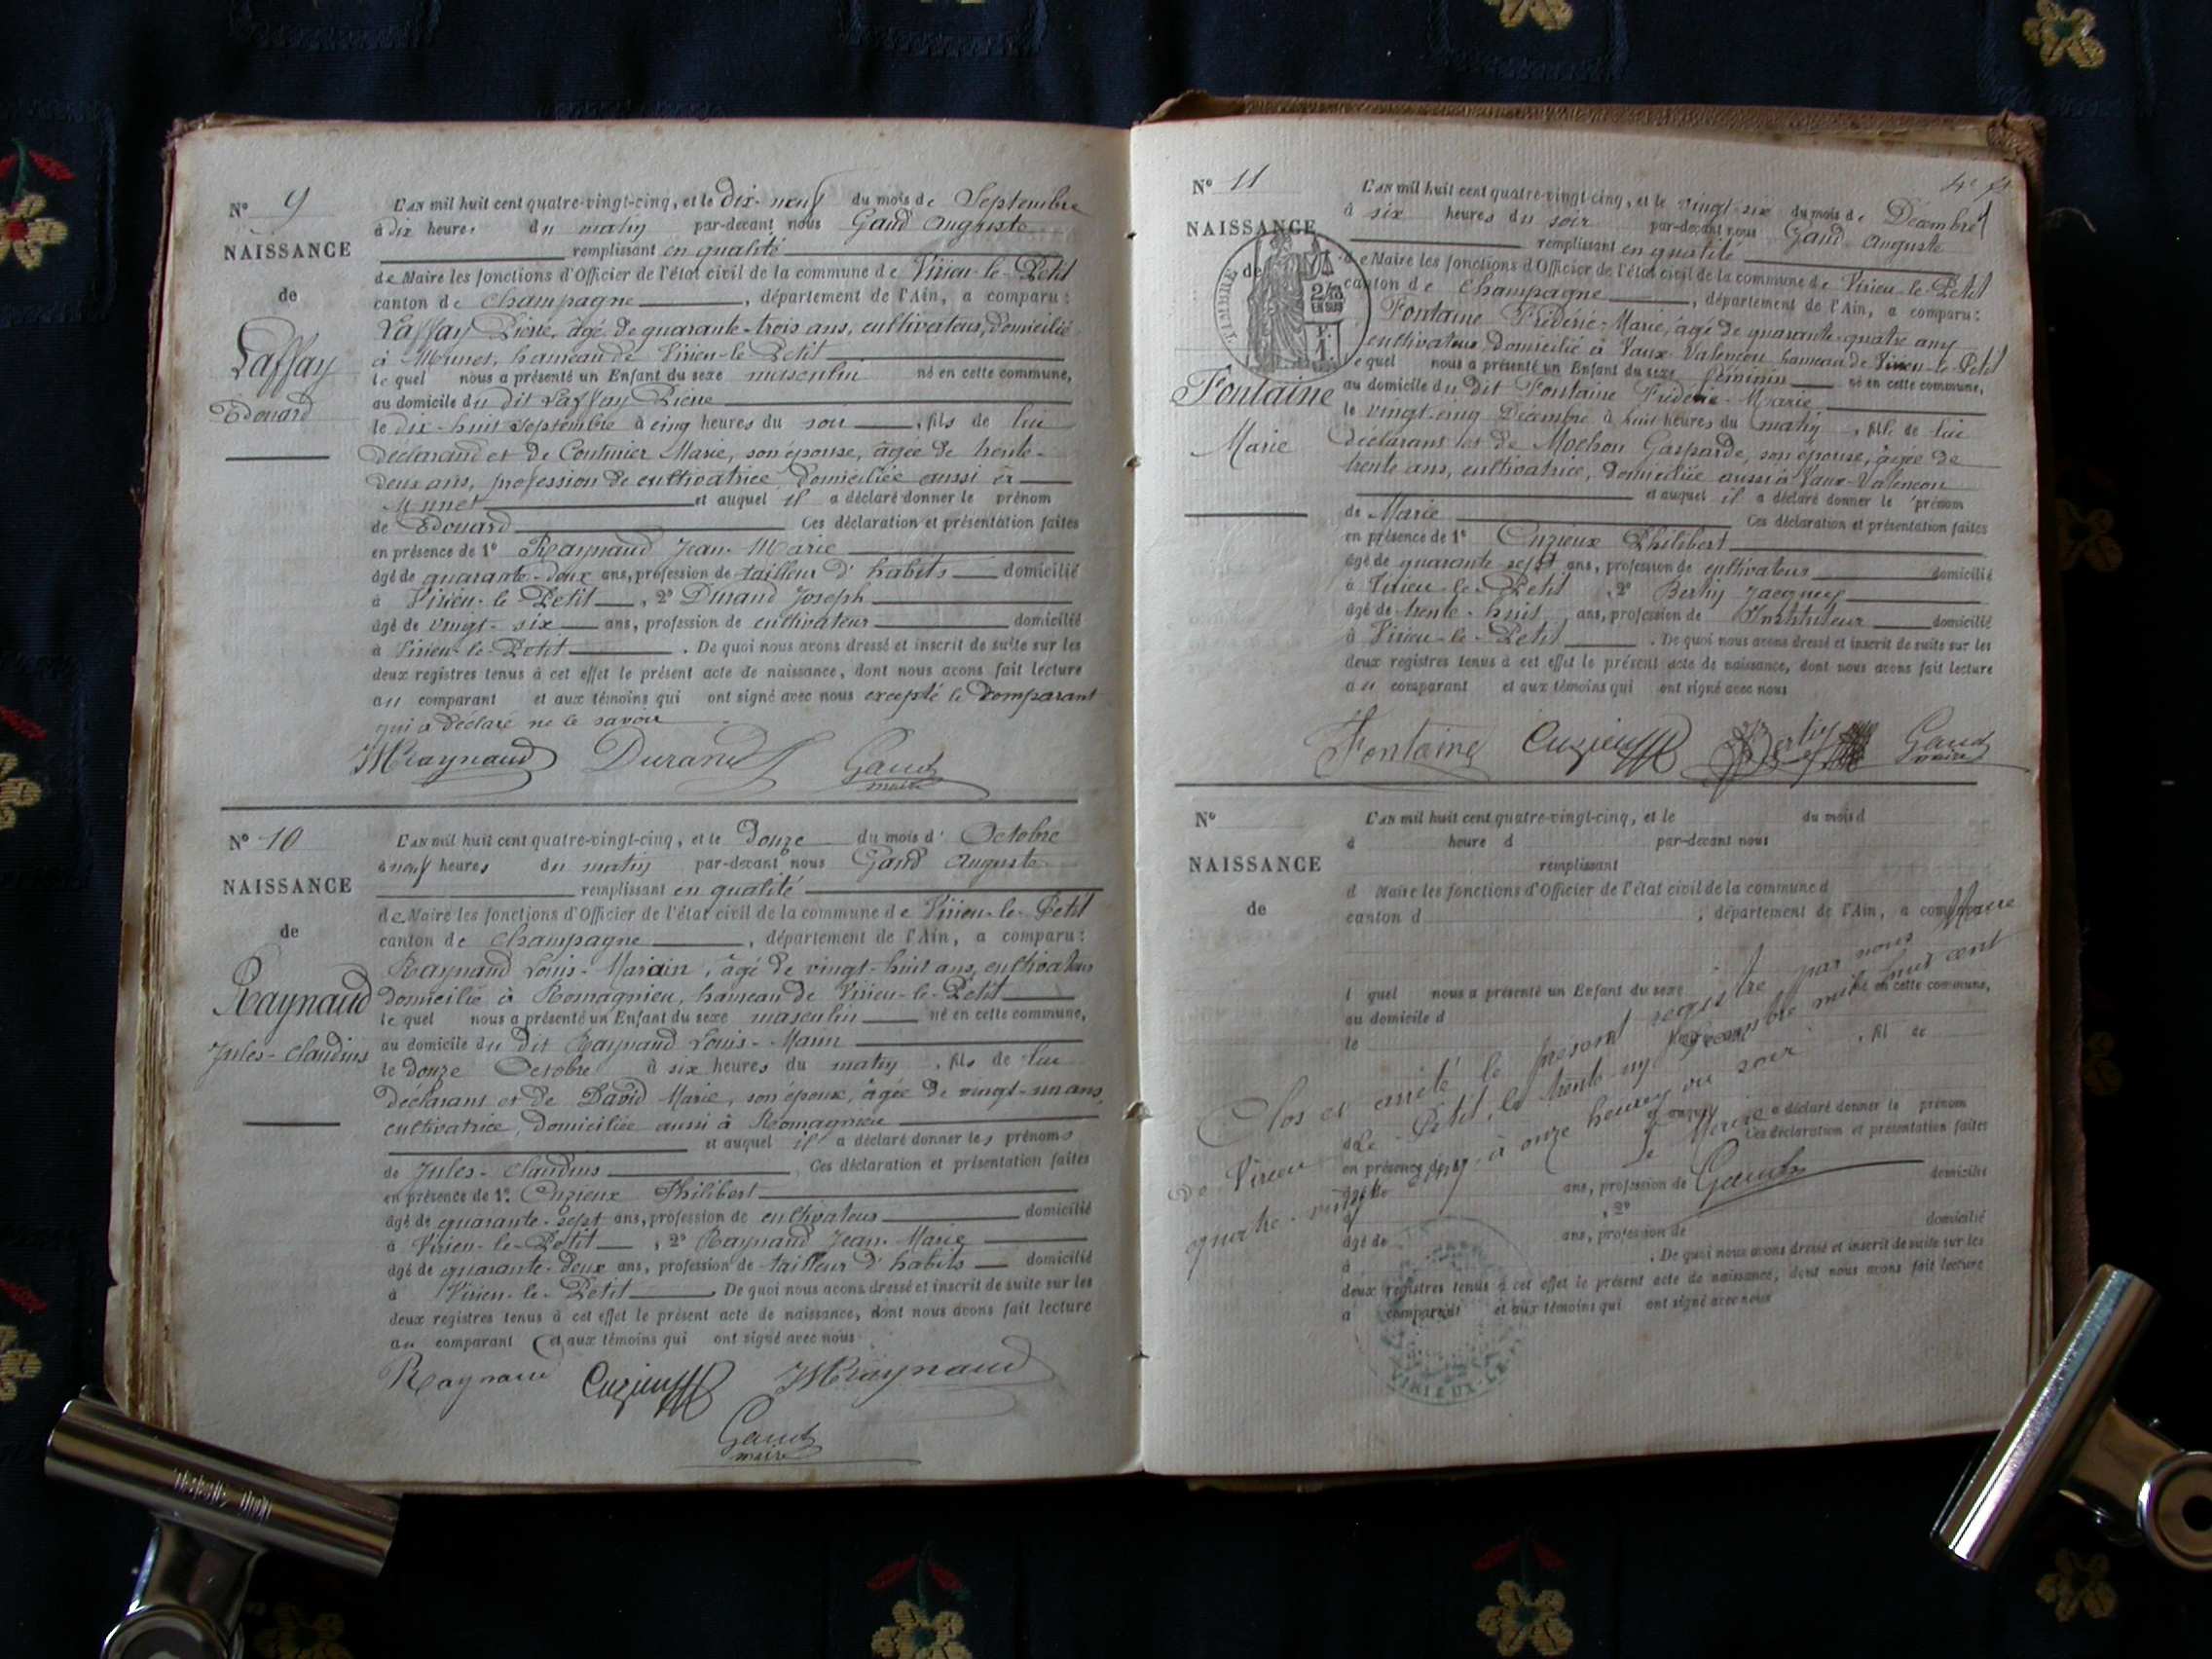 N° 9
NAISSANCE
de
Laffay
Edouard
L'AN mil huit cent quatre-vingt-cinq, et le dix-neuf du mois de Septembre
à dix heures du matin par-devant nous Gaud Auguste
remplissant en qualité
de Maire les fonctions d'Officier de l'état civil de la commune de Virieu-le-Petit
canton de Champagne, département de l'Ain, a comparu :
Laffay Pierre, âgé de quarante-trois ans, cultivateur, domicilié
à Munet, hameau de Virieu-le-Petit
le quel nous a présenté un Enfant du sexe masculin né en cette commune,
au domicile du dit Laffay Pierre
le dix-huit Septembre à cinq heures du soir, fils de lui
déclarant et de Couturier Marie, son épouse, âgée de trente-
deux ans, profession de cultivatrice domiciliée aussi à
Munet et auquel il a déclaré donner le prénom
de Edouard Ces déclaration et présentation faites
en présence de 1° Raynaud Jean-Marie
âgé de quarante-deux ans, profession de tailleur d'habits domicilié
à Virieu-le-Petit, 2° Durand Joseph
âgé de vingt-six ans, profession de cultivateur domicilié
à Virieu-le-Petit. De quoi nous avons dressé et inscrit de suite sur les
deux registres tenus à cet effet le présent acte de naissance, dont nous avons fait lecture
au comparant et aux témoins qui ont signé avec nous excepté le comparant
qui a déclaré ne le savoir
JMRaynaud Durand Gaud
maire
N° 10
NAISSANCE
de
Raynaud
Jules-Claudius
L'AN mil huit cent quatre-vingt-cinq, et le douze du mois d' Octobre
à neuf heures du matin par-devant nous Gaud Auguste
remplissant en qualité
de Maire les fonctions d'Officier de l'état civil de la commune de Virieu-le-Petit
canton de Champagne, département de l'Ain, a comparu :
Raynaud Louis-Marin, âgé de vingt-huit ans, cultivateur
domicilié à Romagnieu, hameau de Virieu-le-Petit
le quel nous a présenté un Enfant du sexe masculin né en cette commune,
au domicile du dit Raynaud Louis-Marin
le douze Octobre à six heures du matin, fils de lui
déclarant et de David Marie, son épouse, âgée de vingt-un ans,
cultivatrice, domiciliée aussi à Romagnieu
et auquel il a déclaré donner les prénoms
de Jules-Claudius Ces déclaration et présentation faites
en présence de 1° Cuzieux Philibert
âgé de quarante-sept ans, profession de cultivateur domicilié
à Virieu-le-Petit, 2° Raynaud Jean-Marie
âgé de quarante-deux ans, profession de tailleur d'habits domicilié
à Virieu-le-Petit De quoi nous avons dressé et inscrit de suite sur les
deux registres tenus à cet effet le présent acte de naissance, dont nous avons fait lecture
au comparant et aux témoins qui ont signé avec nous
Raynaud Cuzieux JMRaynaud
Gaud
maire
N° 11
NAISSANCE
de
TIMBRE
Fontaine
Marie
L'AN mil huit cent quatre-vingt-cinq, et le vingt-six du mois de Décembre
à six heures du soir par-devant nous Gaud Auguste
remplissant en qualité
de Maire les fonctions d'Officier de l'état civil de la commune de Virieu-le-Petit
canton de Champagne, département de l'Ain, a comparu :
Fontaine Frédéric-Marie, âgé de quarante-quatre ans
cultivateur, domicilié à Vaux-Valencon hameau de Virieu-le-Petit
le quel nous a présenté un Enfant du sexe féminin né en cette commune,
au domicile du dit Fontaine Frédéric-Marie
le vingt-cinq Décembre à huit heures du matin, fille de lui
déclarant et de Mochon Gasparde, son épouse, âgée de
trente ans, cultivatrice, domiciliée aussi à Vaux-Valencon
et auquel il a déclaré donner le prénom
de Marie Ces déclaration et présentation faites
en présence de 1° Cuzieux Philibert
âgé de quarante-sept ans, profession de cultivateur domicilié
à Virieu-le-Petit, 2° Bertin Jacques
âgé de trente-huit ans, profession de Instituteur domicilié
à Virieu-le-Petit. De quoi nous avons dressé et inscrit de suite sur les
deux registres tenus à cet effet le présent acte de naissance, dont nous avons fait lecture
au comparant et aux témoins qui ont signé avec nous
Fontaine Cuzieux Bertin Gaud
maire
N°
NAISSANCE
de
L'AN mil huit cent quatre-vingt-cinq, et le du mois d
à heure d par-devant nous
remplissant
d Maire les fonctions d'Officier de l'état civil de la commune d
canton d , département de l'Ain, a comparu
l quel nous a présenté un Enfant du sexe né en cette commune,
au domicile d
le , fil de
et auquel a déclaré donner le prénom
de Ces déclaration et présentation faites
en présence de 1°
âgé de ans, profession de domicilié
à , 2°
âgé de ans, profession de domicilié
à . De quoi nous avons dressé et inscrit de suite sur les
deux registres tenus à cet effet le présent acte de naissance, dont nous avons fait lecture
a comparant et aux témoins qui ont signé avec nous
Clos et arrêté le présent registre par nous Maire
de Virieu-le-Petit, le trente-un Décembre mil huit cent
quatre-vingt-cinq, à onze heures du soir
Le Maire
Gaud
VIRIEUX-LE-P